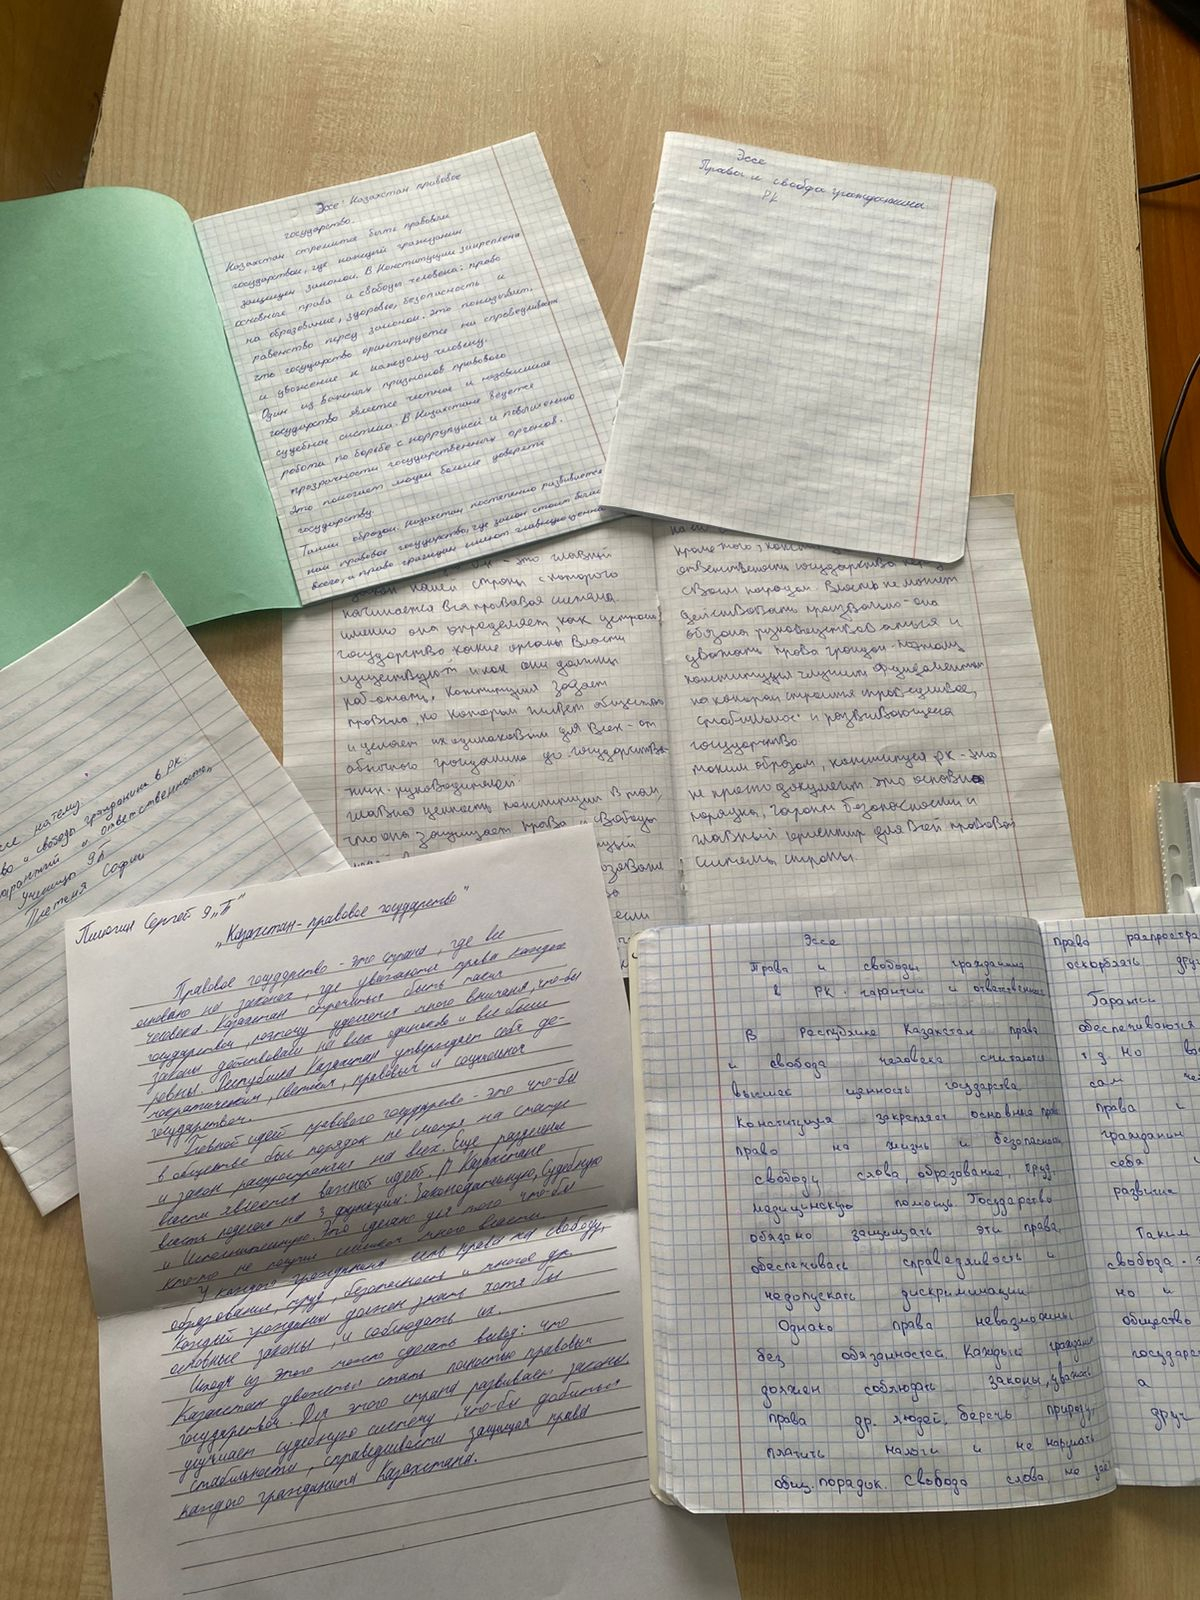 Эссе: Казахстан правовое
государство.
Казахстан стремится быть правовым
государством, где каждый гражданин
защищен законом. В Конституции закреплены
основные права и свободы человека: право
на образование, здоровье, безопасность и
равенство перед законом. Это показывает,
что государство орантируется на справедливость
и уважение к каждому человеку.
Один из важных признаков правового
государство является честная и независимая
судебная система. В Казахстане ведется
работа по борьбе с коррупцией и повышению
прозрачности государственных органов.
Это помогает людям больше доверять
государству.
Таким образом, Казахстан постепенно развивается
как правовое государство, где закон стоит выше
всего, а права граждан имеют главную ценно
Эссе
Права и свобода гражданина
РК
это главный
закон нашей страны с которого
начинается вся правовая система.
именно она определяет, как устроено
государство какие органы власти
существуют и как они должны
работать, Конституция задает
правила, по которым живет общество
и делает их одинаковым для всех - от
обычного гражданина до государстве-
нных руководителей.
главная ценность конституции в том,
что она защищает права и свободы
если
кроме того, конст
ответственность государства пер
своим народом. Власть не может
действовать произвольно - она
обязана руководствоваться и
уважать права граждан поэтому
конституция служит фундаментом
на котором строится справедливое,
стабильное и развивающееся
государство
таким образом, конституция РК - это
не просто документ это основа
порядка, гарант безопасности и
главный ориентир для всей правовой
системы страны.
на тему:
во и свободы гражданина в РК:
гарантии и ответственность"
Ученицы 9Б
Плетеня Софии
Плюгин Сергей 9 „Б"
„Казахстан - правовое государство"
Правовое государство - это страна, где все
основано на законах, где уважаются права каждого
человека. Казахстан стремиться быть таким
государством, поэтому уделяется много внимания, что-бы
законы действовали на всех одинаково и все были
равны. Республика Казахстан утверждает себя де-
мократическим, светским, правовым и социальным
государством.
Главной идеей правового государства - это что-бы
в обществе был порядок не смотря на статус
и закон распространялся на всех. Еще разделение
власти является важной идеей. В Казахстане
власть поделена на 3 функции: Законодательную, Судебную
и Исполнительную. Это сделано для того что-бы
кто-то не получил слишком много власти.
У каждого гражданина есть права на свободу,
образование, труд, безопасность и многое др.
Каждый гражданин должен знать хотя бы
основные законы, и соблюдать их.
Исходя из этого можно сделать вывод: что
Казахстан движется стать полностью правовым
государством. Для этого страна развивает законы,
улучшает судебную систему, что-бы добиться
стабильности, справедливости защищая права
каждого гражданина Казахстана.
Эссе
Права и свободы гражданина
в РК: гарантии и ответственно
В Республике Казахстан права
и свобода человека считаются
высшей ценность государства.
Конституция закрепляет основные права
право на жизнь и безопасность
свободу слова, образование, труд,
медицинскую помощь. Государство
обязано защищать эти права,
обеспечивать справедливость и
недопускать дискриминации
Однако права невозможны
без обязанностей. Каждый гражданин
должен соблюдать законы, уважать
права др. людей, беречь природу,
платить налоги и не нарушать
общ. порядок. Свобода слова не дает
право распростра
оскорблять друг
Гарантии
обеспечиваются
т.д. Но во
сам че
права и
гражданин
себя и
развитие
Таким
свобода - э
но и
общество
государст
а
друг